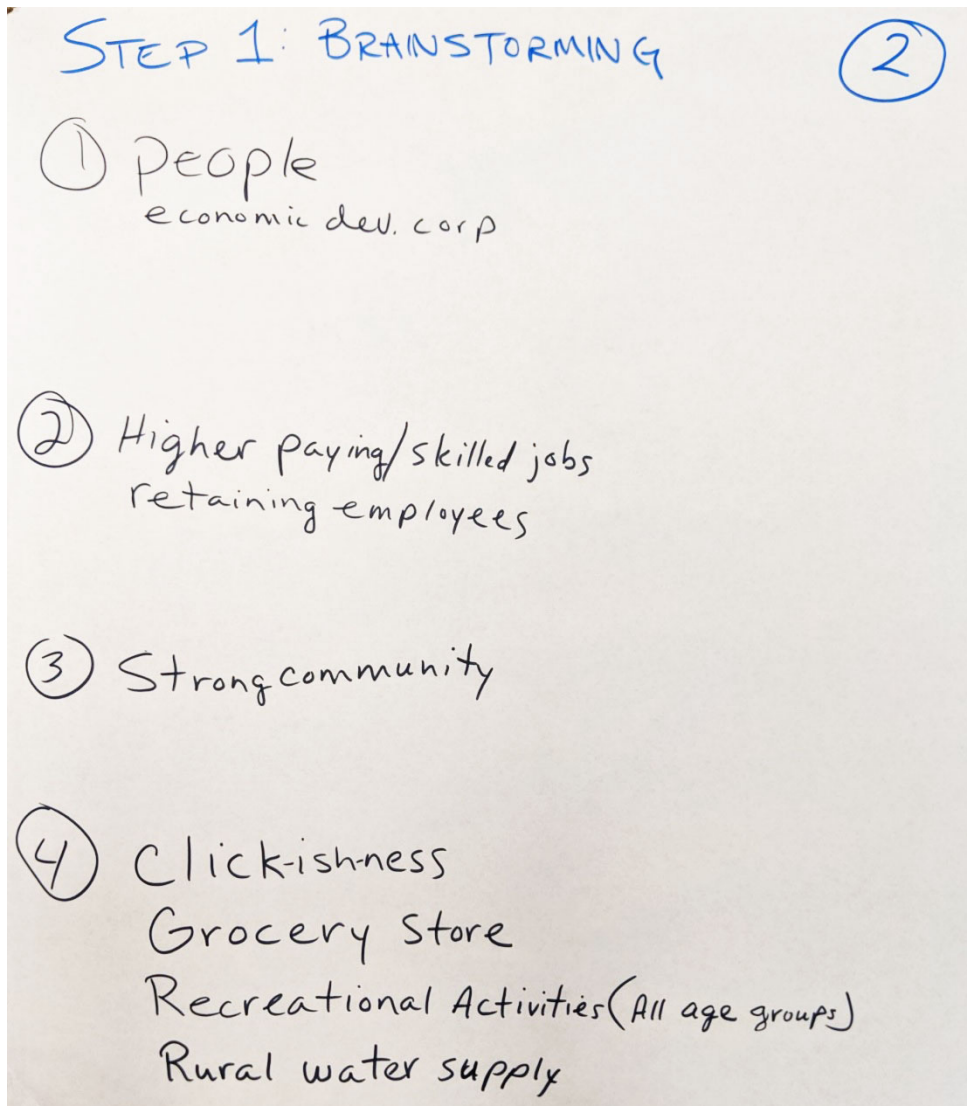 STEP 1: BRAINSTORMING 2
1 People
economic dev. corp
2 Higher paying/skilled jobs
retaining employees
3 Strong community
4 Click-ish-ness
Grocery Store
Recreational Activities (All age groups)
Rural water supply